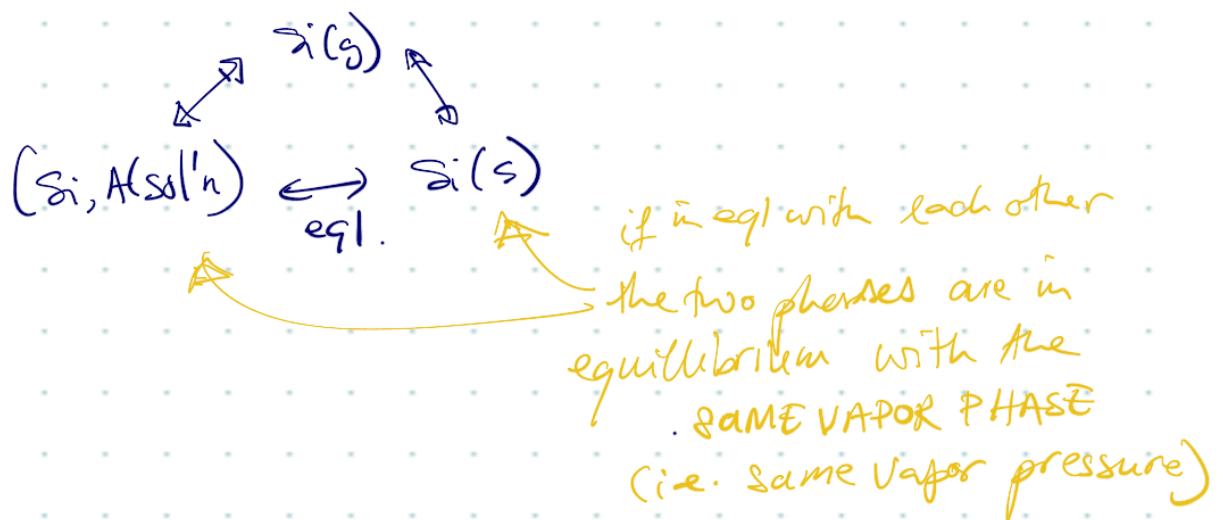 Si(g)
(Si, Al sol'n) Si(s)
eql.
if in eql with each other
the two phases are in
equillibrium with the
SAME VAPOR PHASE
(i.e. same vapor pressure)